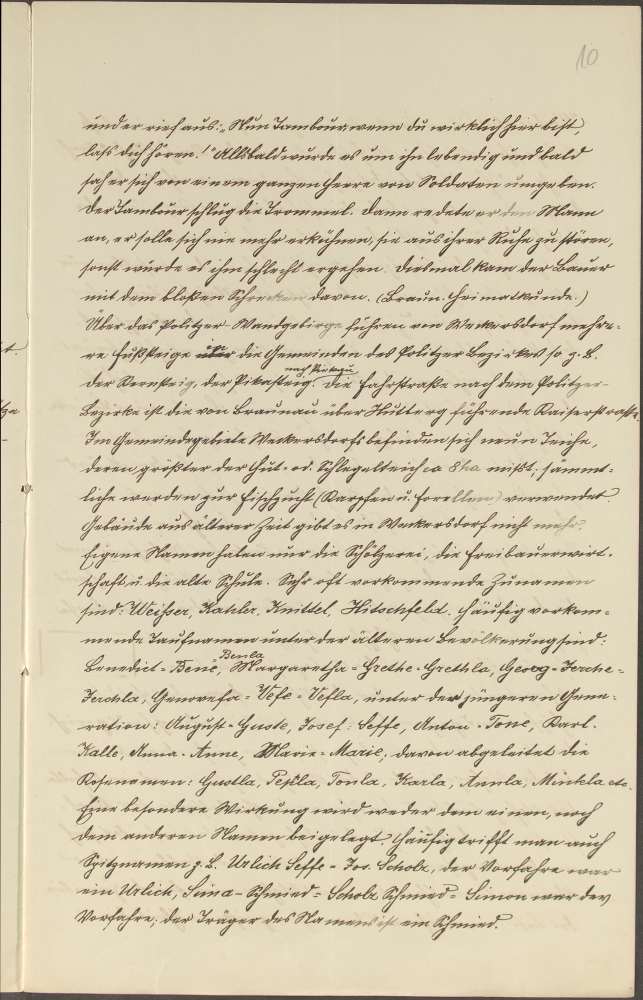 10
und er rief aus: „Nun Tambour, wenn du wirklich hier bist,
laß dich hören!“ Allsbald wurde es um ihn lebendig und bald
sah er sich von einem ganzen Heere von Soldaten umgeben.
Der Tambour schlug die Trommel. Dann redete er den Mann
an, er solle sich nie mehr erkühnen, sie aus ihrer Ruhe zu stören,
sonst würde es ihm schlecht ergehen. Diesmal kam der Bauer
mit dem bloßen Schrecken davon. (Braun. Heimatkunde.)
Über das Politzer Wandgebirge führen von Weckersdorf mehre-
re Fußsteige über die Gemeinden des Politzer Bezirkes so z. B.
der Kernsteig, der Pikasteig, die Fahrstraße nach dem Politzer-
Bezirke ist die von Braunau über Hutberg führende Kaiserstraße.
Im Gemeindegebiete Weckersdorfs befinden sich neun Teiche,
deren größter der Hut- od. Schlegelteich ca 8 ha mißt, sämmt-
liche werden zur Fischzucht (Karpfen u. Forellen) verwendet.
Gebäude aus älterer Zeit gibt es in Weckersdorf nicht mehr.
Eigene Namen haben nur die Schölzerei, die Freibauerwirt-
schaft u. die alte Schule. Sehr oft vorkommende Zunamen
sind: Weisser, Kahler, Knittel, Hitschfeld. Häufig vorkom-
mende Taufnamen unter der älteren Bevölkerung sind:
Benla
Benedict = Bene, Margaretha = Grethe - Grethla, Georg = Jerche -
Jerchla, Genovefa = Vefe - Vefla, unter der jüngeren Gene-
ration: August - Guste, Josef: Seffe, Anton - Tone, Karl -
Kalle, Anna - Anne, Marie = Marie; davon abgeleitet die
Kosenamen: Gustla, Pepla, Tonla, Karla, Annla, Minkla etc.
Eine besondere Wirkung wird weder dem einen, noch
dem anderen Namen beigelegt. Häufig trifft man auch
Spitznamen z. B. Urlich Seffe = Jos. Scholz, der Vorfahre war
ein Urlich, Sima - Schmied = Scholz Schmied = Simon war der
Vorfahre; der Träger des Namens ist ein Schmied.